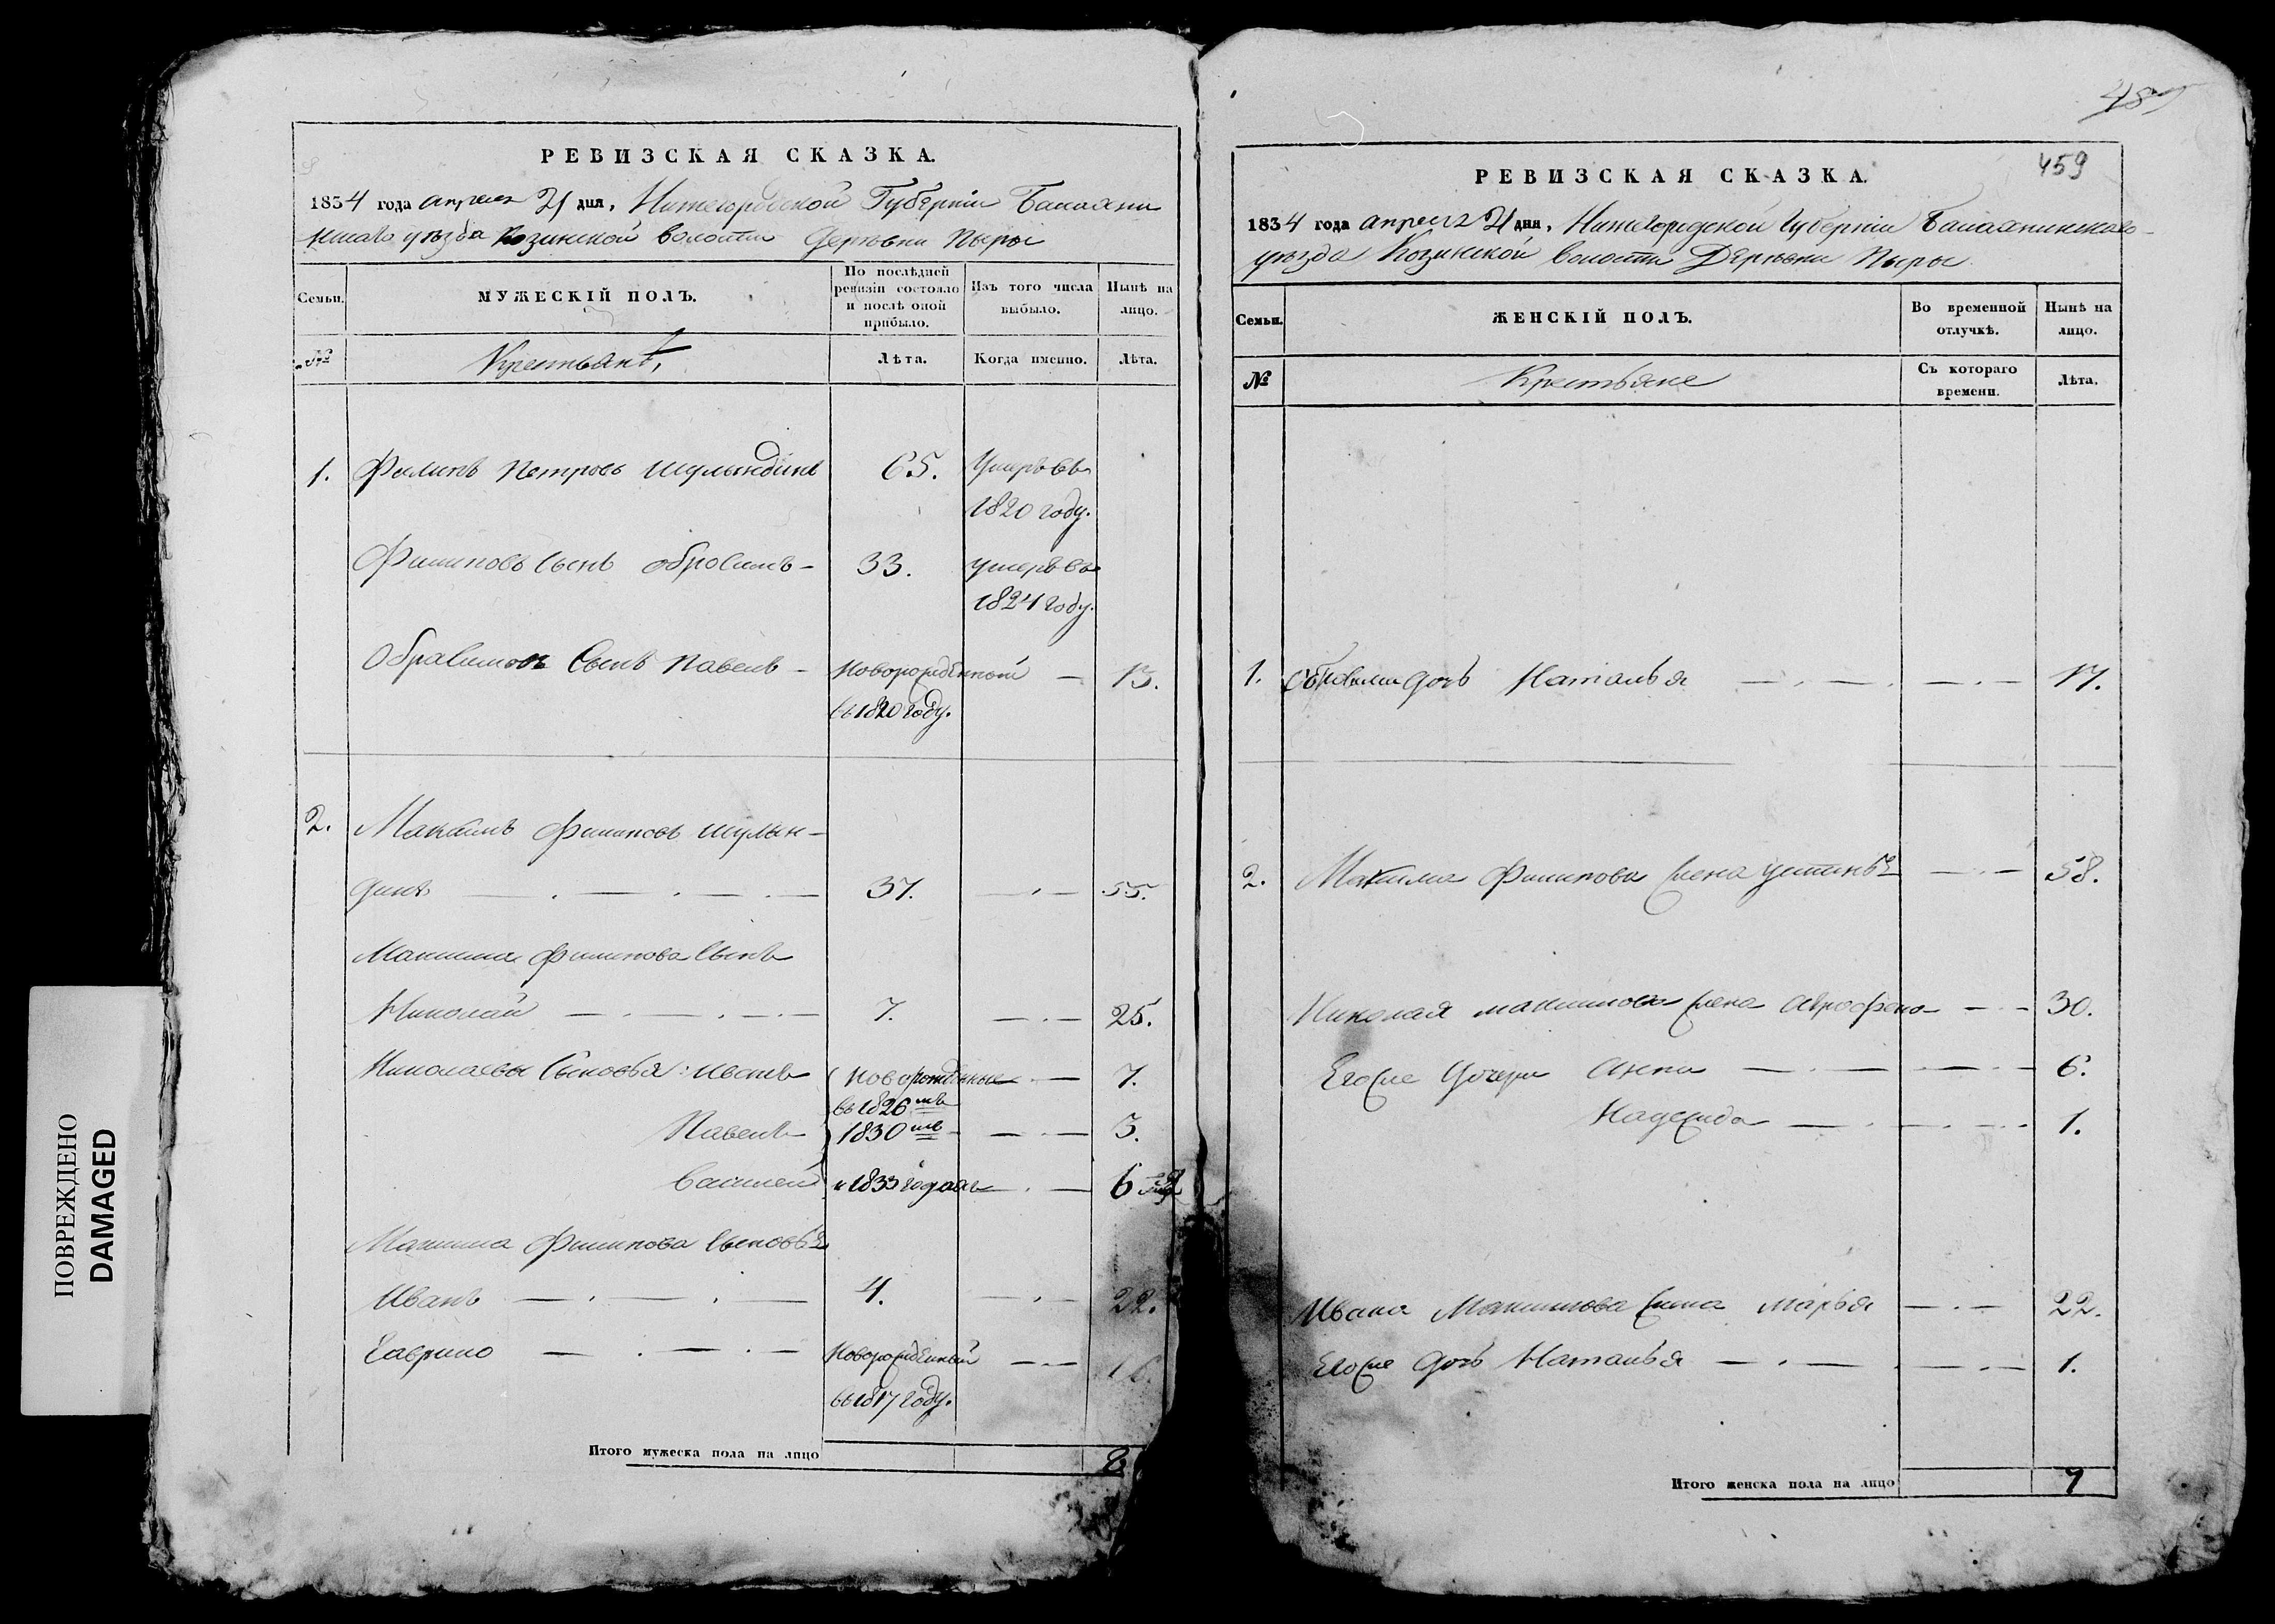 487
РЕВИЗСКАЯ СКАЗКА.
1834 года апреля 21 дня, Нижегородской Губернiи Балахни
нскаго уѣзда Козинской волости Деревни Пыры
Семьи.
МУЖЕСКIЙ ПОЛЪ.
По послѣдней ревизiи состояло и послѣ оной прибыло.
Изъ того числа выбыло.
Нынѣ на лицо.
№
Крестьянъ,
Лѣта.
Когда именно.
Лѣта.
1. Филипъ Петровъ Шулындинъ 65. Умеръ въ
1820 году.
Филиповъ сынъ 33. умеръ въ
1824 году.
сынъ Павелъ – новорожденной — 13.
въ 1820 году.
2. Максимъ Филиповъ Шулын–
динъ 37. 55.
Максима Филипова сынъ
Николай 7. 25.
Николаевы сыновья: Иванъ новорожденные 7.
въ 1826мъ
Павелъ 1830мъ 3.
Василей и 1833 годахъ 6
Максима Филипова сыновья
Иванъ 4. 22.
Гаврило новорожденный
въ 1817 году.
Итого мужеска пола на лицо 8
459
РЕВИЗСКАЯ СКАЗКА.
1834 года апреля 21 дня, Нижегородской Губернiи Балахнинскаго
уѣзда Козинской волости Деревни Пыры
Семьи.
ЖЕНСКIЙ ПОЛЪ.
Во временной отлучкѣ.
Нынѣ на лицо.
№
Крестьяне
Съ котораго времени.
Лѣта.
1. дочь Наталья 17.
2. Максима Филипова жена Устинья 58.
Николая Максимова жена 30.
Егоже дочери Анна 6.
Надежда 1.
Ивана Максимова жена Марья 22.
Егоже дочь Наталья 1.
Итого женска пола на лицо 7
ПОВРЕЖДЕНО
DAMAGED